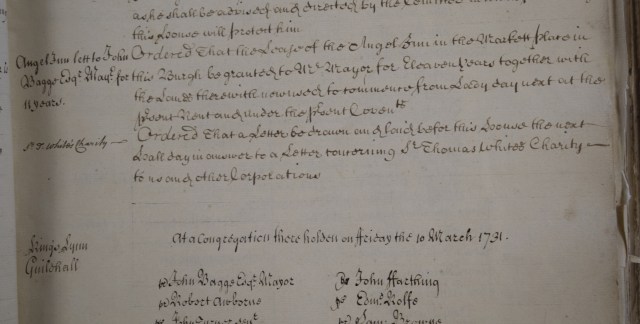 as he shall be advised and directed by the
this House will protect him
Angel Inn lett to John Bagge Esqr. Mayr. for 11 years.
Ordered That the Lease of the Angel Inn in the Markett place in
this Burgh be granted to Mr. Mayor for Eleaven years together with
the Lands therewith now used to commence from Lady day next at the
psent Rent and under the psent Covents
Sr. T. White's Charity
Ordered That a Letter be drawn and laid befor this House the next
Hall day in answer to a Letter concerning Sr. Thomas Whites Charity
to us and other Corporations
King's Lynn
Guildhall
At a Congregation there holden on Friday the 10 March 1731.
John Bagge Esqr. Mayor
John Farthing
Robert Awborne
Edmd. Rolfe
John Turner senr.
Saml. Browne